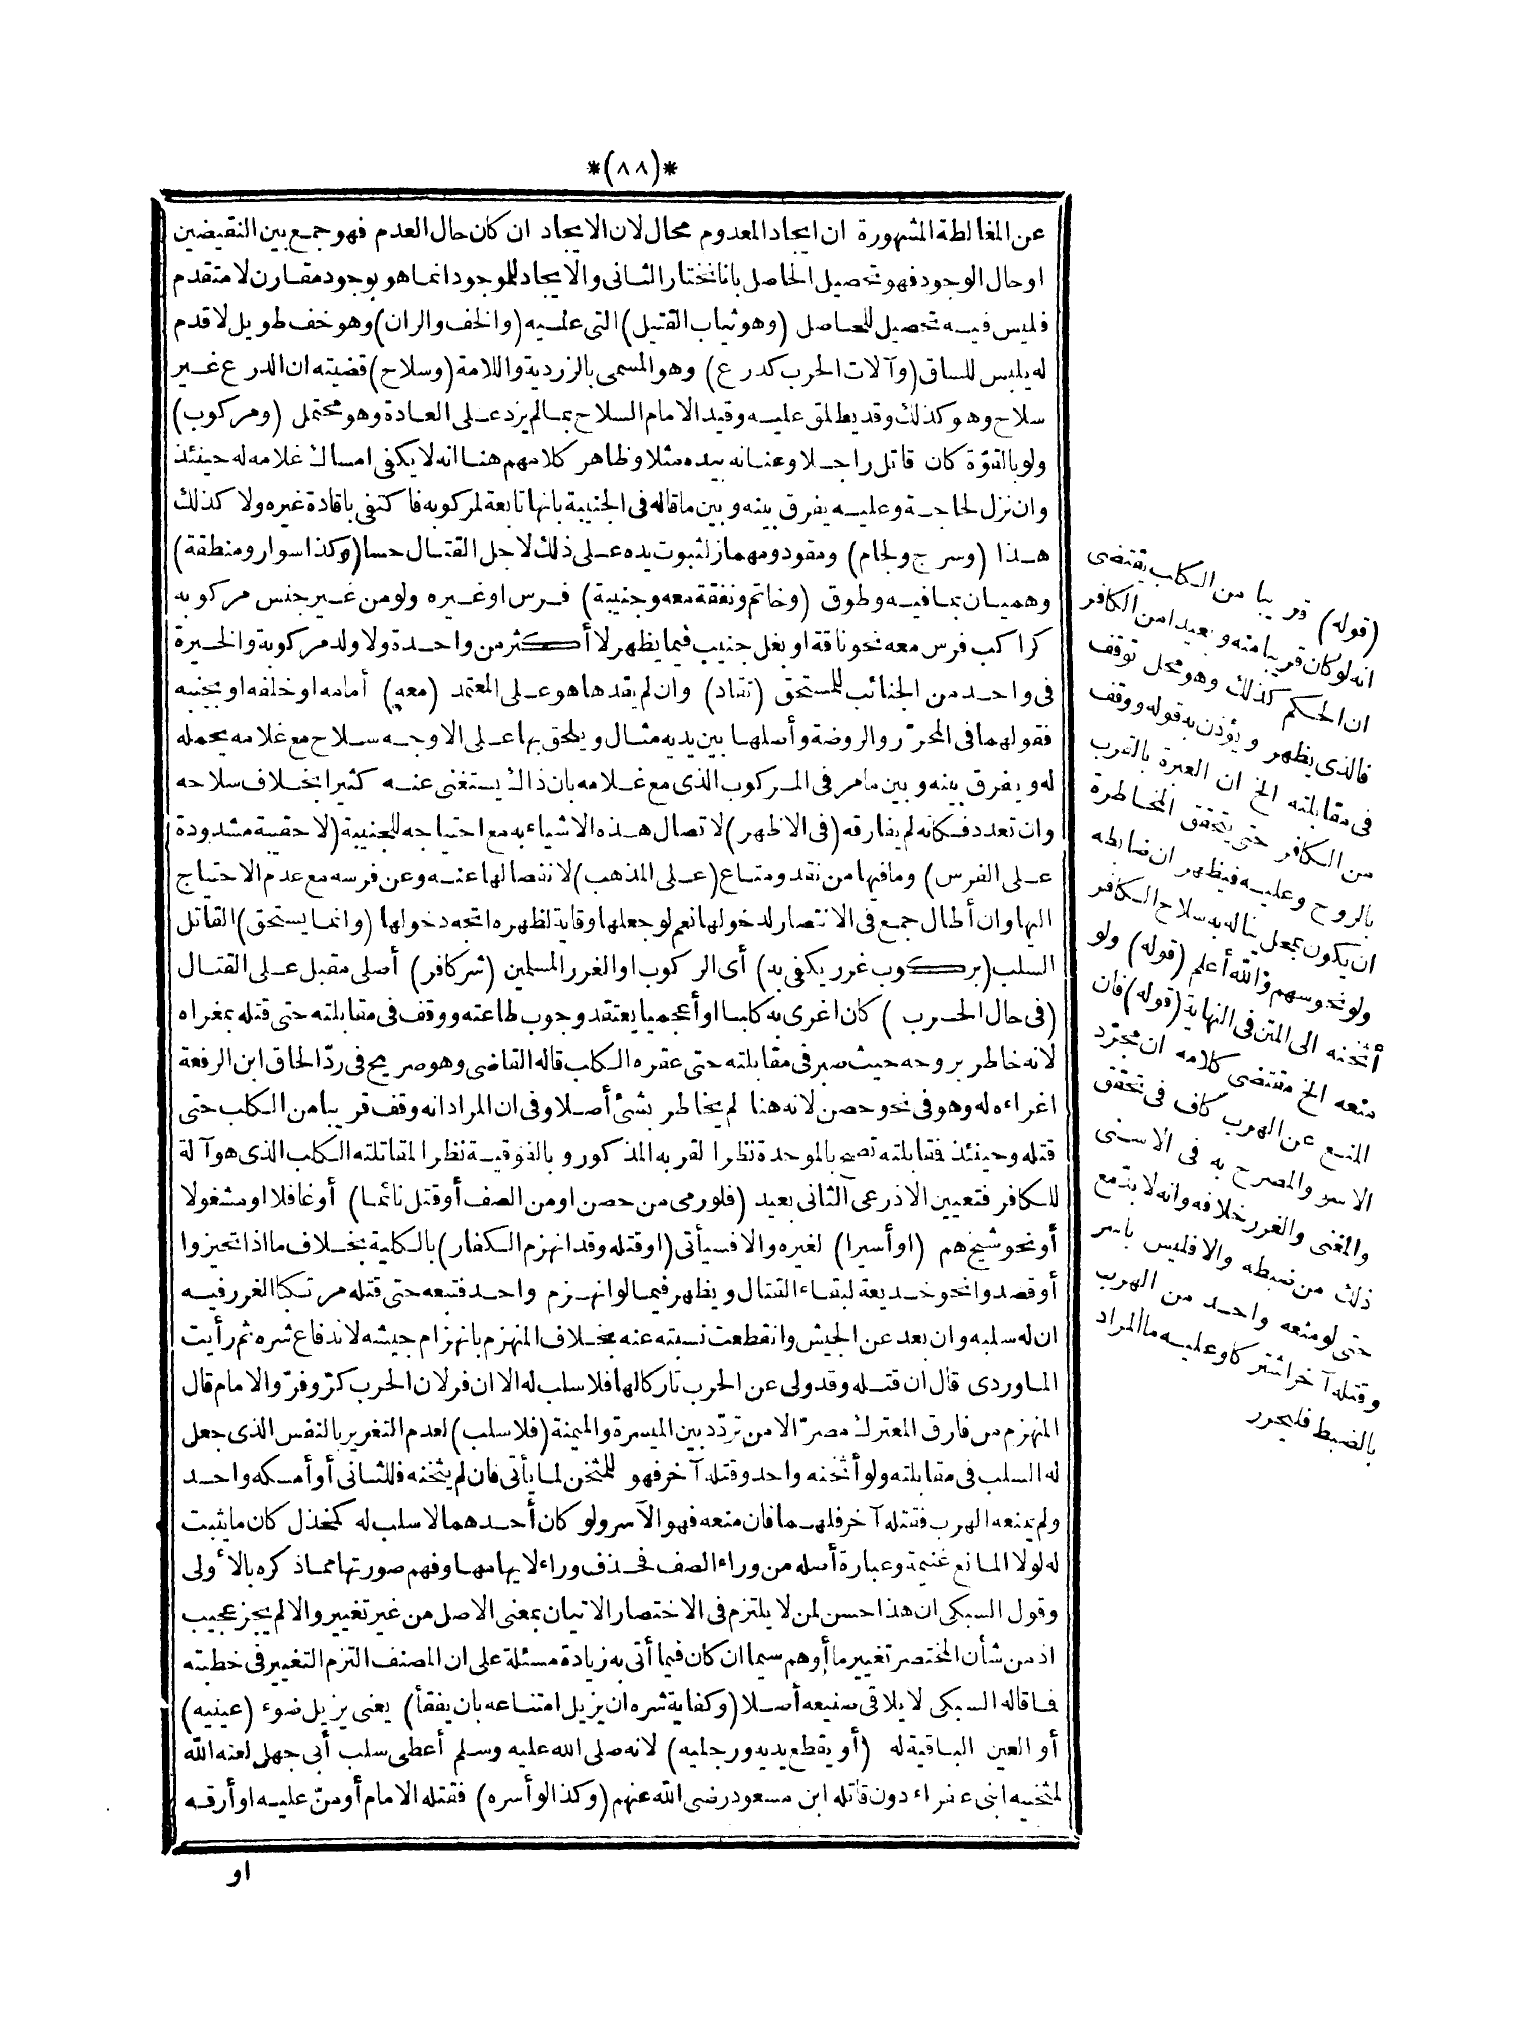 *(٨٨)*
عن المغالطة المشهورة ان ايجاد المعدوم محال لان الايجاد ان كان حال العدم فهو جمع بين النقيضين
او حال الوجود فهو تحصيل الحاصل بانا نختار الثانى والايجاد للموجود انما هو بوجود مقارن لا متقدم
فليس فيه تحصيل للحاصل (وهو ثياب القتيل) التى عليه (والخف والران) وهو خف طويل لا قدم
له يلبس للساق (وآلات الحرب كدرع) وهو المسمى بالزردية واللامة (وسلاح) قضيته ان الدرع غير
سلاح وهو كذلك وقد يطلق عليه وقيد الامام السلاح بما لم يزد على العادة وهو محتمل (ومركوب)
ولو بالقوّة كان قاتل راجلا وعنانه بيده مثلا وظاهر كلامهم هنا انه لا يكفى امساك غلامه له حينئذ
وان نزل لحاجة وعليه يفرق بينه وبين ما قاله فى الجنيبة بانها تابعة لمركوبه فاكتفى باقادة غيره ولا كذلك
هذا (وسرج ولجام) ومقود ومهماز لثبوت يده على ذلك لاجل القتال حسا (وكذا سوار ومنطقة)
وهميان بما فيه وطوق (وخاتم ونفقة معه وجنيبة) فرس او غيره ولو من غير جنس مركوبه
كراكب فرس معه نحو ناقة او بغل جنيب فيما يظهر لا أكثر من واحدة ولا ولد مركوبه والخيرة
فى واحد من الجنائب للمستحق (تقاد) وان لم يقدها هو على المعتمد (معه) أمامه او خلفه او بجنبه
فقولهما فى المحرّر والروضة وأصلها بين يديه مثال ويلحق بها على الاوجه سلاح مع غلامه يحمله
له ويفرق بينه وبين ما مر فى المركوب الذى مع غلامه بان ذاك يستغنى عنه كثيرا بخلاف سلاحه
وان تعدد فكانه لم يفارقه (فى الاظهر) لاتصال هذه الاشياء به مع احتياجه للجنيبة (لا حقيبة مشدودة
على الفرس) وما فيها من نقد ومتاع (على المذهب) لانفصالها عنه وعن فرسه مع عدم الاحتياج
اليها وان أطال جمع فى الانتصار لدخولها نعم لو جعلها وقاية لظهره اتجه دخولها (وانما يستحق) القاتل
السلب (بركوب غرر يكفى به) أى الركوب او الغرر المسلمين (شر كافر) أصلى مقبل على القتال
(فى حال الحرب) كان اغرى به كلبا او أعجميا يعتقد وجوب طاعته ووقف فى مقابلته حتى قتله بمغراه
لانه خاطر بروحه حيث صبر فى مقابلته حتى عقره الكلب قاله القاضى وهو صريح فى ردّ الحاق ابن الرفعة
اغراءه له وهو فى نحو حصن لانه هنا لم يخاطر بشئ أصلا وفى ان المراد انه وقف قريبا من الكلب حتى
قتله وحينئذ فقابلته تصح بالموحدة نظرا لقربه المذكور وبالفوقية نظرا لمقاتلته الكلب الذى هو آلة
للكافر فتعيين الاذرعى الثانى بعيد (فلو رمى من حصن او من الصف أو قتل نائما) أو غافلا او مشغولا
أو نحو شيخ هم (او أسيرا) لغيره والا فسيأتى (او قتله وقد انهزم الكفار) بالكلية بخلاف ما اذا تحيزوا
أو قصدوا نحو خديعة لبقاء القتال ويظهر فيما لو انهزم واحد فتبعه حتى قتله مرتكبا الغرر فيه
ان له سلبه وان بعد عن الجيش وانقطعت نسبته عنه بخلاف المنهزم بانهزام جيشه لاندفاع شره ثم رأيت
الماوردى قال ان قتله وقد ولى عن الحرب تاركا لها فلا سلب له الا ان فر لان الحرب كرّ وفرّ والامام قال
المنهزم من فارق المعترك مصرّا لا من تردّد بين الميسرة والميمنة (فلا سلب) لعدم التغرير بالنفس الذى جعل
له السلب فى مقابلته ولو أثخنه واحد وقتله آخر فهو للمثخن لما يأتى فان لم يثخنه فللثانى أو أمسكه واحد
ولم يمنعه الهرب فقتله آخر فلهما فان منعه فهو الآسر ولو كان أحدهما لا سلب له كمخذل كان ما يثبت
له لولا المانع غنيمة وعبارة أصله من وراء الصف فحذف وراء لايهامها وفهم صورتها مما ذكره بالأولى
وقول السبكى ان هذا حسن لمن لا يلتزم فى الاختصار الاتيان بمعنى الاصل من غير تغيير والا لم يجز عجيب
اذ من شأن المختصر تغيير ما أوهم سيما ان كان فيما أتى به زيادة مسئلة على ان المصنف التزم التغيير فى خطبته
فما قاله السبكى لا يلاقى صنيعه أصلا (وكفاية شره ان يزيل امتناعه بان يفقأ) يعنى يزيل ضوء (عينيه)
أو العين الباقية له (أو يقطع يديه ورجليه) لانه صلى الله عليه وسلم أعطى سلب أبى جهل لعنه الله
لمثخنيه ابنى عفراء دون قاتله ابن مسعود رضى الله عنهم (وكذا لو أسره) فقتله الامام أو منّ عليه او أرقه
او
(قوله) قريبا من الكلب يقتضى
انه لو كان قريبا منه وبعيدا من الكافر
ان الحكم كذلك وهو محل توقف
فالذى يظهر ويؤذن به قوله ووقف
فى مقابلته الخ ان العبرة بالقرب
من الكافر حتى يتحقق المخاطرة
بالروح وعليه فيظهر ان ضابطه
ان يكون بمحل يناله به سلاح الكافر
ولو نحو سهم والله أعلم (قوله) ولو
أثخنه الى المتن فى النهاية (قوله) فان
منعه الخ مقتضى كلامه ان مجرّد
المنع عن الهرب كاف فى تحقق
الاسر والمصرح به فى الاسنى
والمغنى والغرر خلافه وانه لا بدّ مع
ذلك من ضبطه والا فليس باسر
حتى لو منعه واحد من الهرب
وقتله آخر اشتركا وعليه ما المراد
بالضبط فليحرر